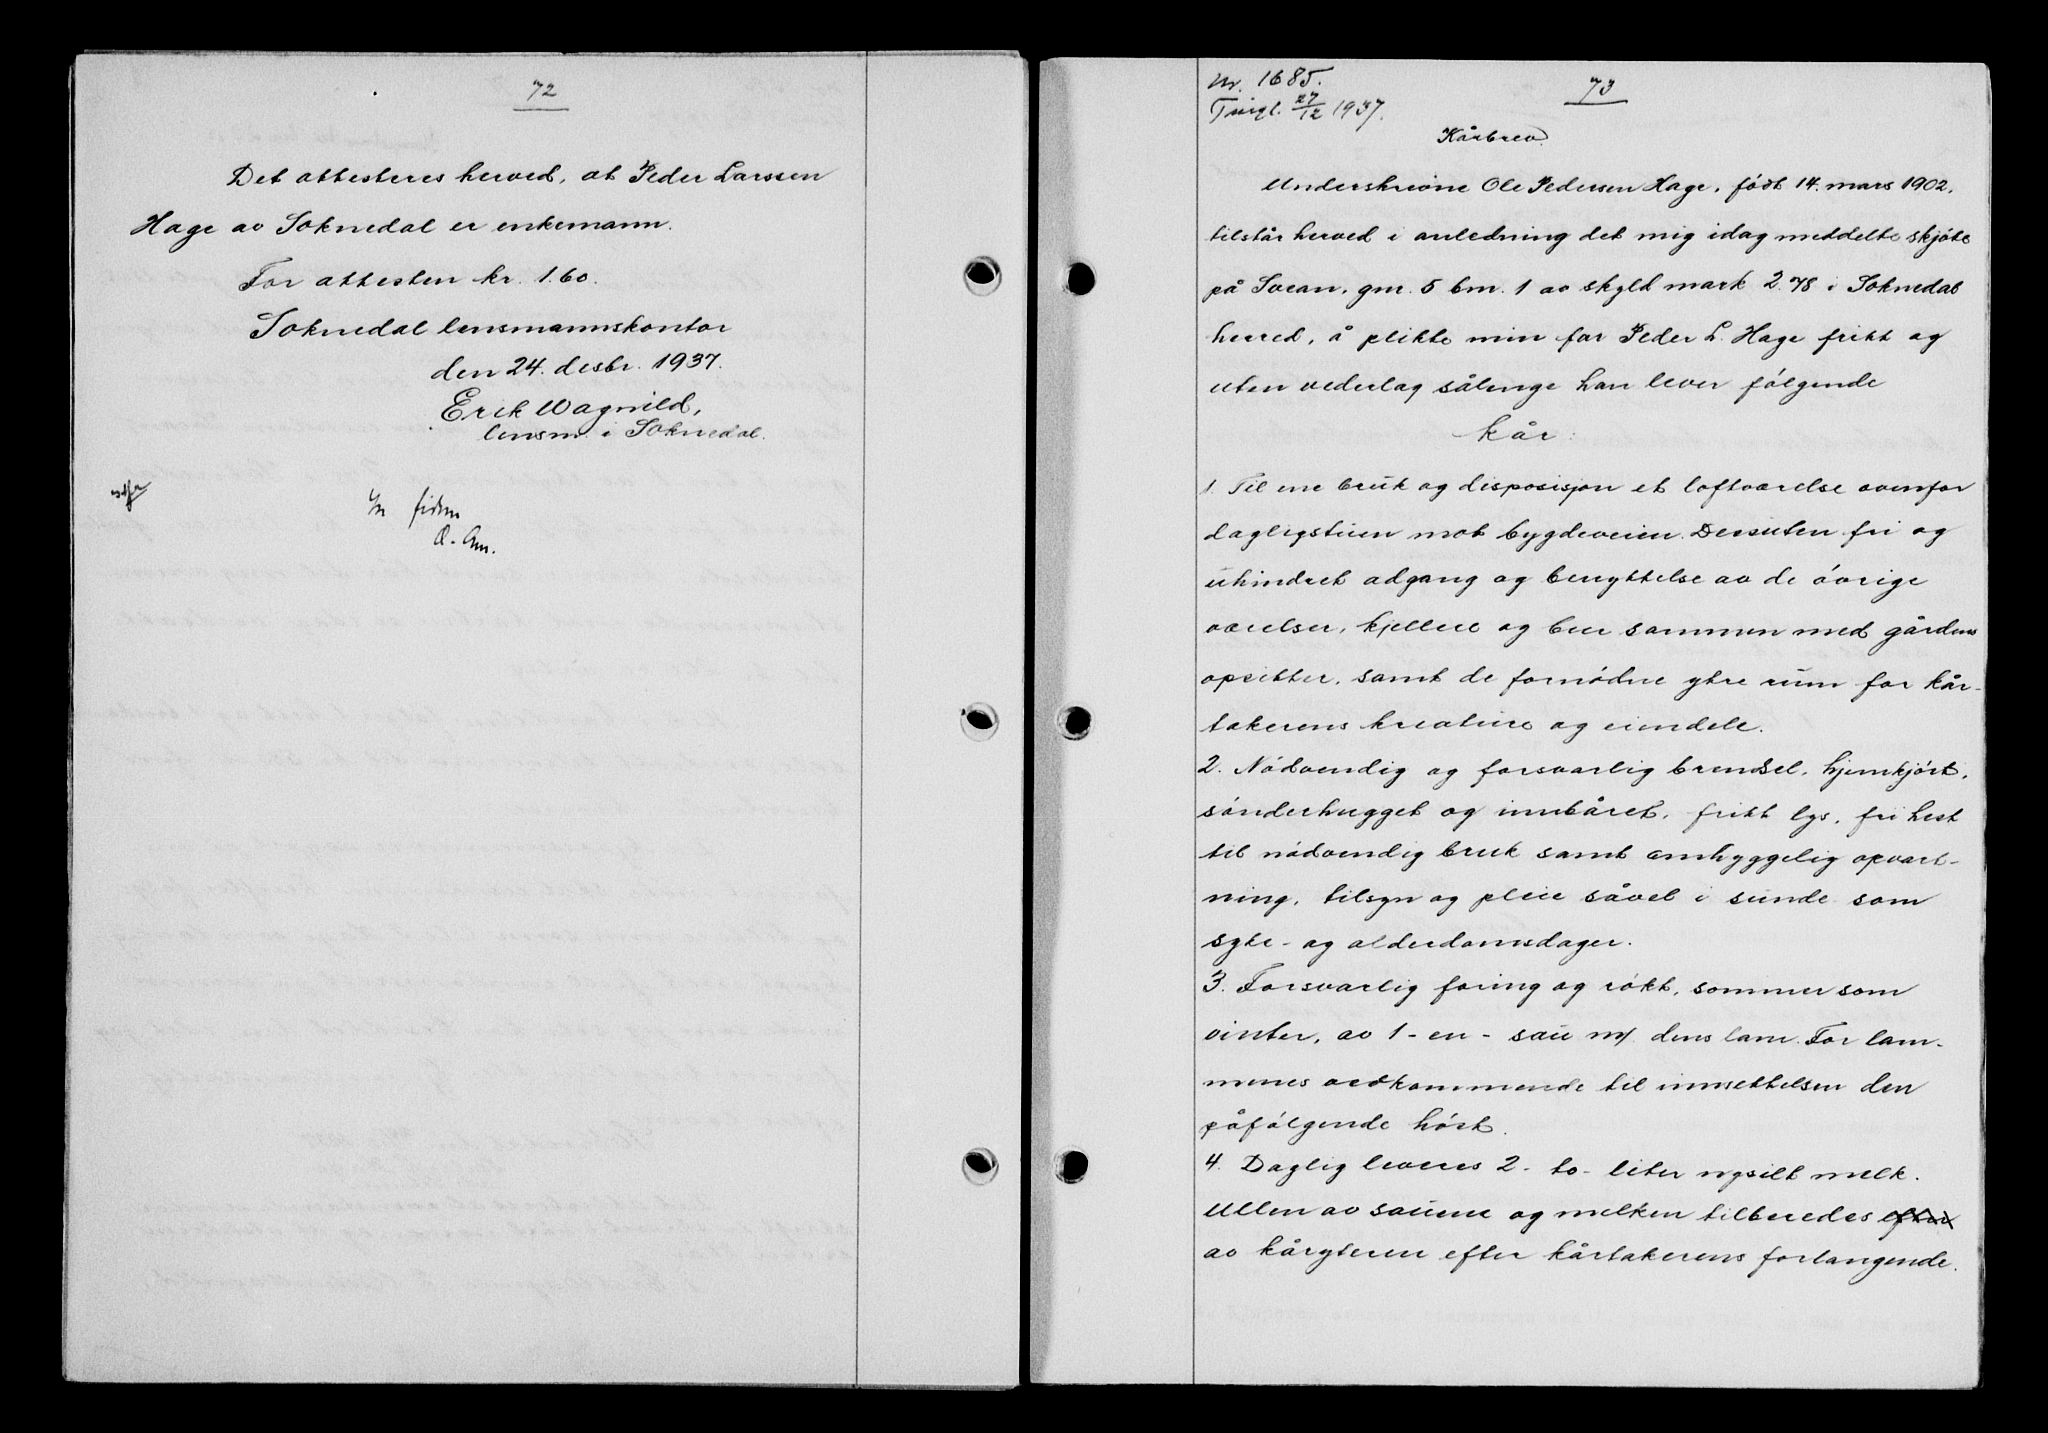 72
Det attesteres herved, at Peder Larssen
Hage av Soknedal er enkemann.
For attesten kr. 1.60.
Soknedal lensmannskontor
den 24. desbr. 1937.
Erik Wagnild,
lensm. i Soknedal.
Nr. 1685.
Tingl. 27/12 1937.
73
Kårbrev.
Underskrevne Ole Pedersen Hage, født 14. mars 1902,
tilstår herved i anledning det mig idag meddelte skjøte
på Svean, gnr. 5 bnr. 1 av skyld mark 2.78 i Soknedal
herred, å plikte min far Peder L. Hage fritt og
uten vederlag sålenge han lever følgende
kår:
1. Til ene bruk og disposisjon et loftværelse ovenfor
dagligstuen mot bygdeveien. Dessuten fri og
uhindret adgang og benyttelse av de øvrige
værelser, kjellere og bur sammen med gårdens
opsitter, samt de fornødne ytre rum for kår-
takerens kreature og eiendele.
2. Nødvendig og forsvarlig brendsel, hjemkjørt,
sønderhugget og innbåret, fritt lys, fri hest
til nødvendig bruk samt omhyggelig opvart-
ning, tilsyn og pleie såvel i sunde som
syke- og alderdomsdager.
3. Forsvarlig foring og røkt, sommer som
vinter, av 1 - en - sau m/ dens lam. For lam-
menes vedkommende til innsettelsen den
påfølgende høst.
4. Daglig leveres 2 - to - liter nysilt melk.
Ullen av sauene og melken tilberedes efter
av kåryteren efter kårtakerens forlangende.